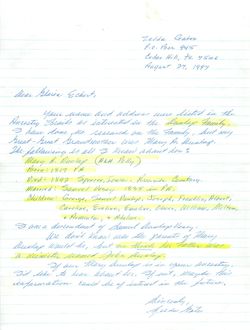 Zelda Gates
P.O. Box 945
Cedar Hill, Tx 75104
August 27, 1994
Dear Gloria Eckert,
Your name and address was listed in the
Ancestry as interested in the Dunlap Family.
I have done no research on the Family, but my
Great-Great Grandmother was Mary A. Dunlap.
The following is all I know about her:
Mary A. Dunlap (AKA Polly)
Born: 1819 PA.
Died: 1892
Married: Samuel Henry 1834 in PA.
Children: George, Samuel Dunlap, Joseph, Franklin, Albert,
Caroline, Emeline, William, Milton,
I am a descendant of Samuel Dunlap Henry.
We don't know who the parents of Mary
Dunlap would be, but we think her father was
a minister named John Dunlap.
If this Mary Dunlap is in your ancestry,
I'd like to hear about her. If not, maybe this
information could be of interest in the future.
Sincerely,
Zelda Gates